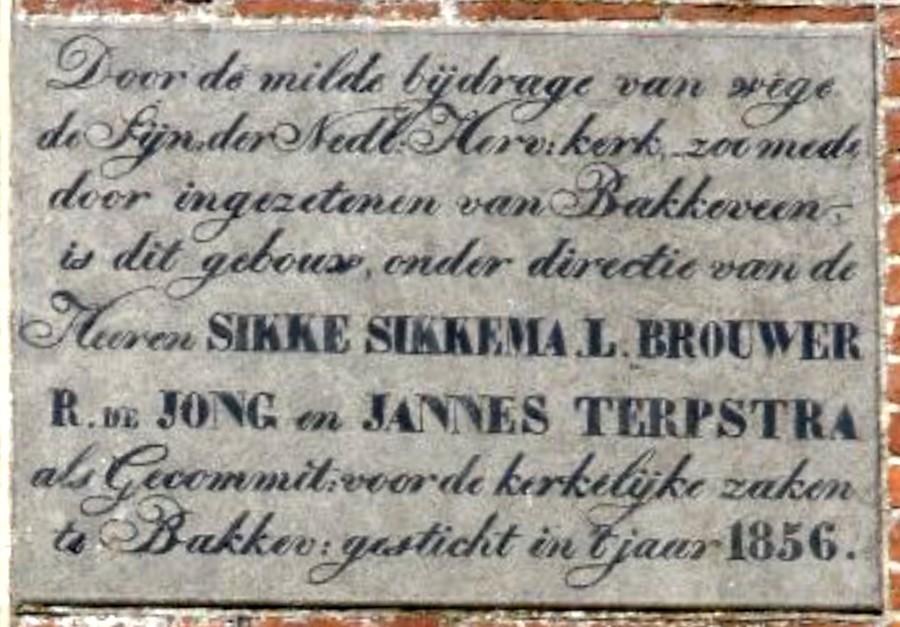 Door de milde bijdrage van wege
de Sijn. der Nedl: Herv: kerk, zoo mede
door ingezetenen van Bakkeveen
is dit gebouw, onder directie van de
Heeren SIKKE SIKKEMA L. BROUWER
R. DE JONG en JANNES TERPSTRA
als Gecommit: voor de kerkelijke zaken
te Bakkev: gesticht in 't jaar 1856.